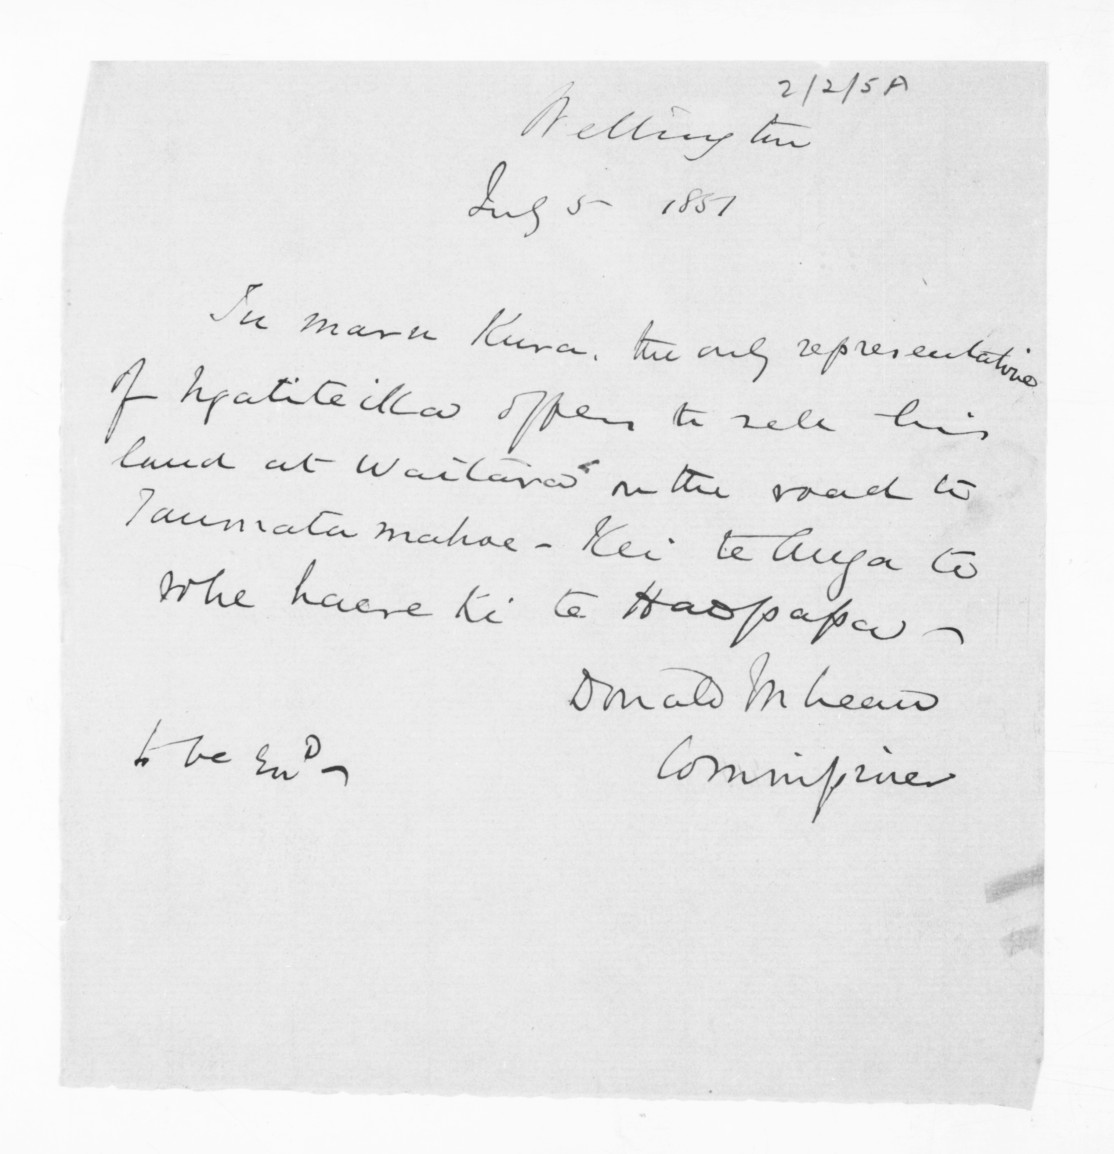 2/2/5A
Wellington
July 5 1851
Tu maru Kura. the only representative
of Ngatiteika offers to sell his
land at Waitara on the road to
Taumatamahoe - Kei te Anga te
rohe haere ki te Haopapa -
Donald McLean
Commissioner
to be End -